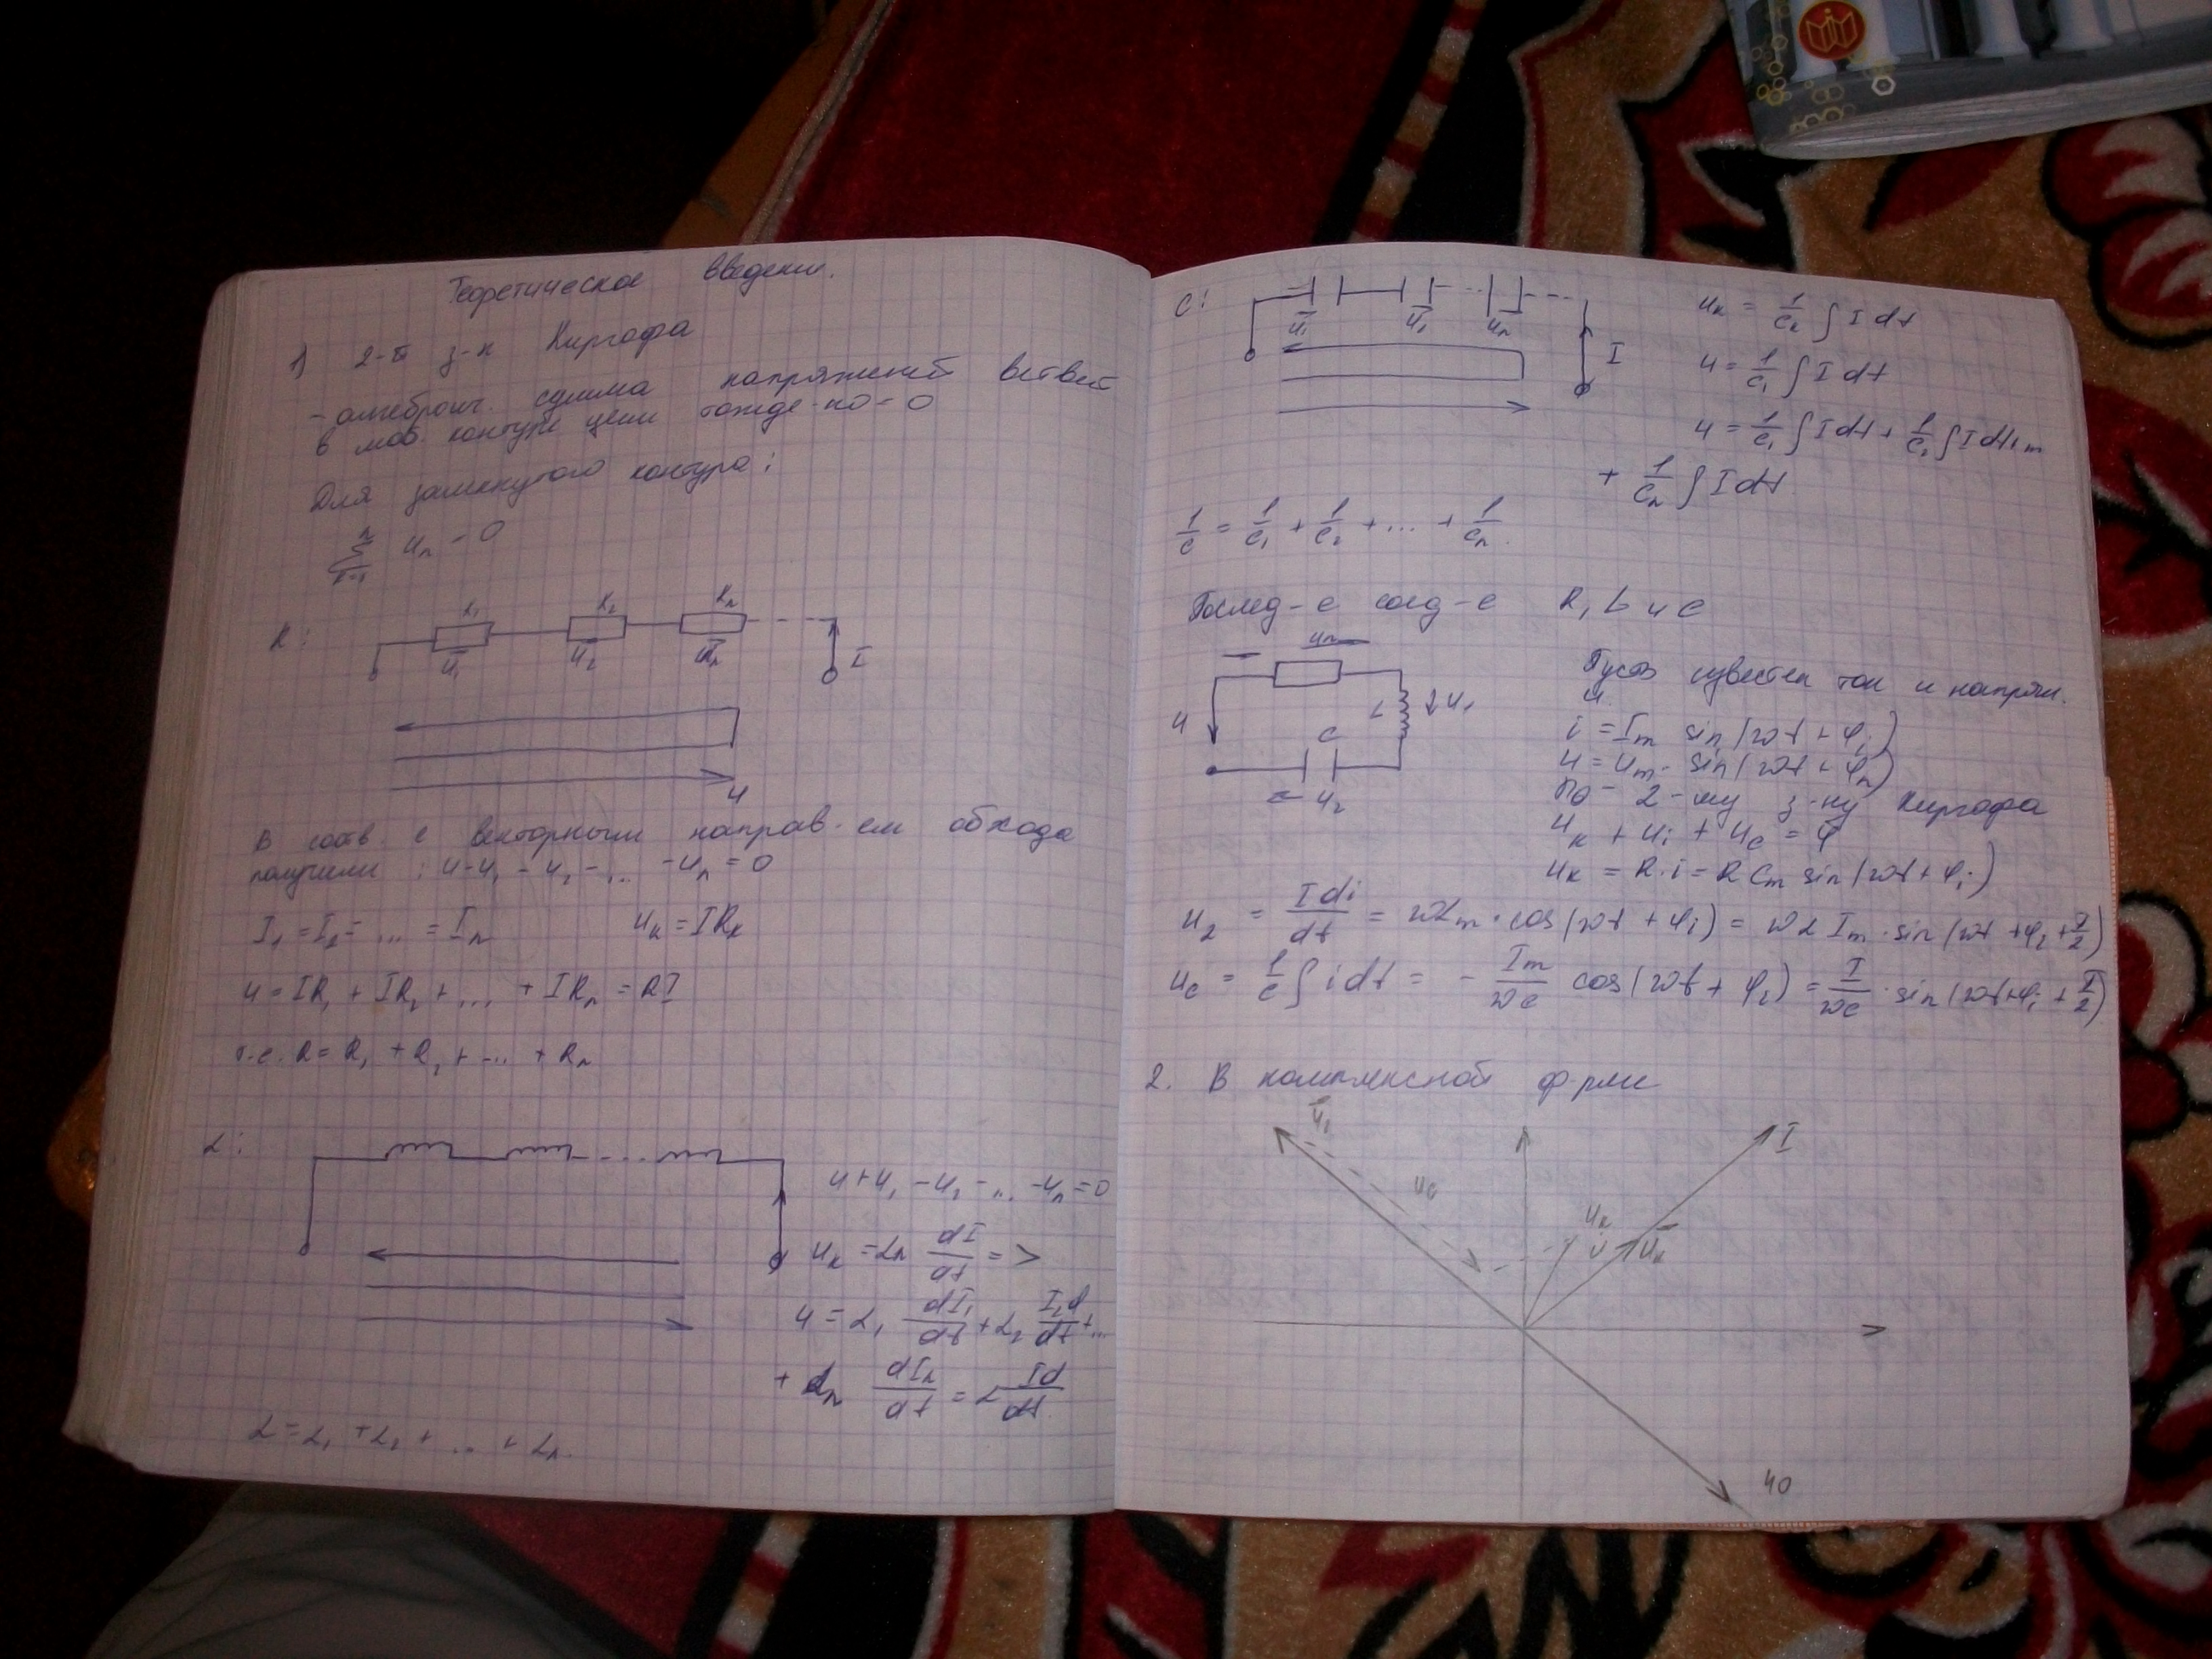 Теоретическое введение.
1) 2-й з-н Киргофа
- алгебраич. сумма напряжений ветвей
в люб. контуре цепи тожде-но = 0
Для замкнутого контура:
n ∑ k=1 Uₙ = 0
R:
R₁ R₂ Rₙ
U₁ U₂ I
U
В соотв. с векторным направ-ем обхода
получили: U-U₁ - U₂ - ... -Uₙ = 0
I₁ = I₂ = ... = Iₙ Uₖ = IRₖ
U = IR₁ + IR₂ + ... + IRₙ = RI
т.е. R = R₁ + R₂ + ... + Rₙ
L:
U+U₁ -U₂ - ... -Uₙ = 0
Uₖ = Lₙ dI/dt =>
U = L₁ dI₁/dt + L₂ I₂d/dt + ...
+ Lₙ dIₙ/dt = L Id/dt
L = L₁ + L₂ + ... + Lₙ.
C:
U₁ U₂ Uₙ I
Uₖ = 1/Cₖ ∫ I dt
U = 1/C₁ ∫ I dt
U = 1/C₁ ∫ I dt + 1/C₂ ∫ I dt + ...
+ 1/Cₙ ∫ I dt.
1/C = 1/C₁ + 1/C₂ + ... + 1/Cₙ.
Послед-е соед-е R, L и C
U L U₁ C U₂
Пусть известен ток и напряж.
U
i = Iₘ sin(ωt + φᵢ)
U = Uₘ · sin(ωt + φₙ)
По - 2-му з-ну Киргофа
Uₖ + Uᵢ + U꜀ = φ
Uₖ = R·i = R Cₘ sin(ωt + φᵢ)
U₂ = I di/dt = ωLₘ · cos(ωt + φᵢ) = ωL Iₘ · sin(ωt + φᵢ + π/2)
U꜀ = 1/C ∫ i dt = - Iₘ/ωC cos(ωt + φᵢ) = I/ωC · sin(ωt + φᵢ + π/2)
2. В комплексной ф-рме
U₁ I
U꜀
Uₖ
U Uₖ
U0